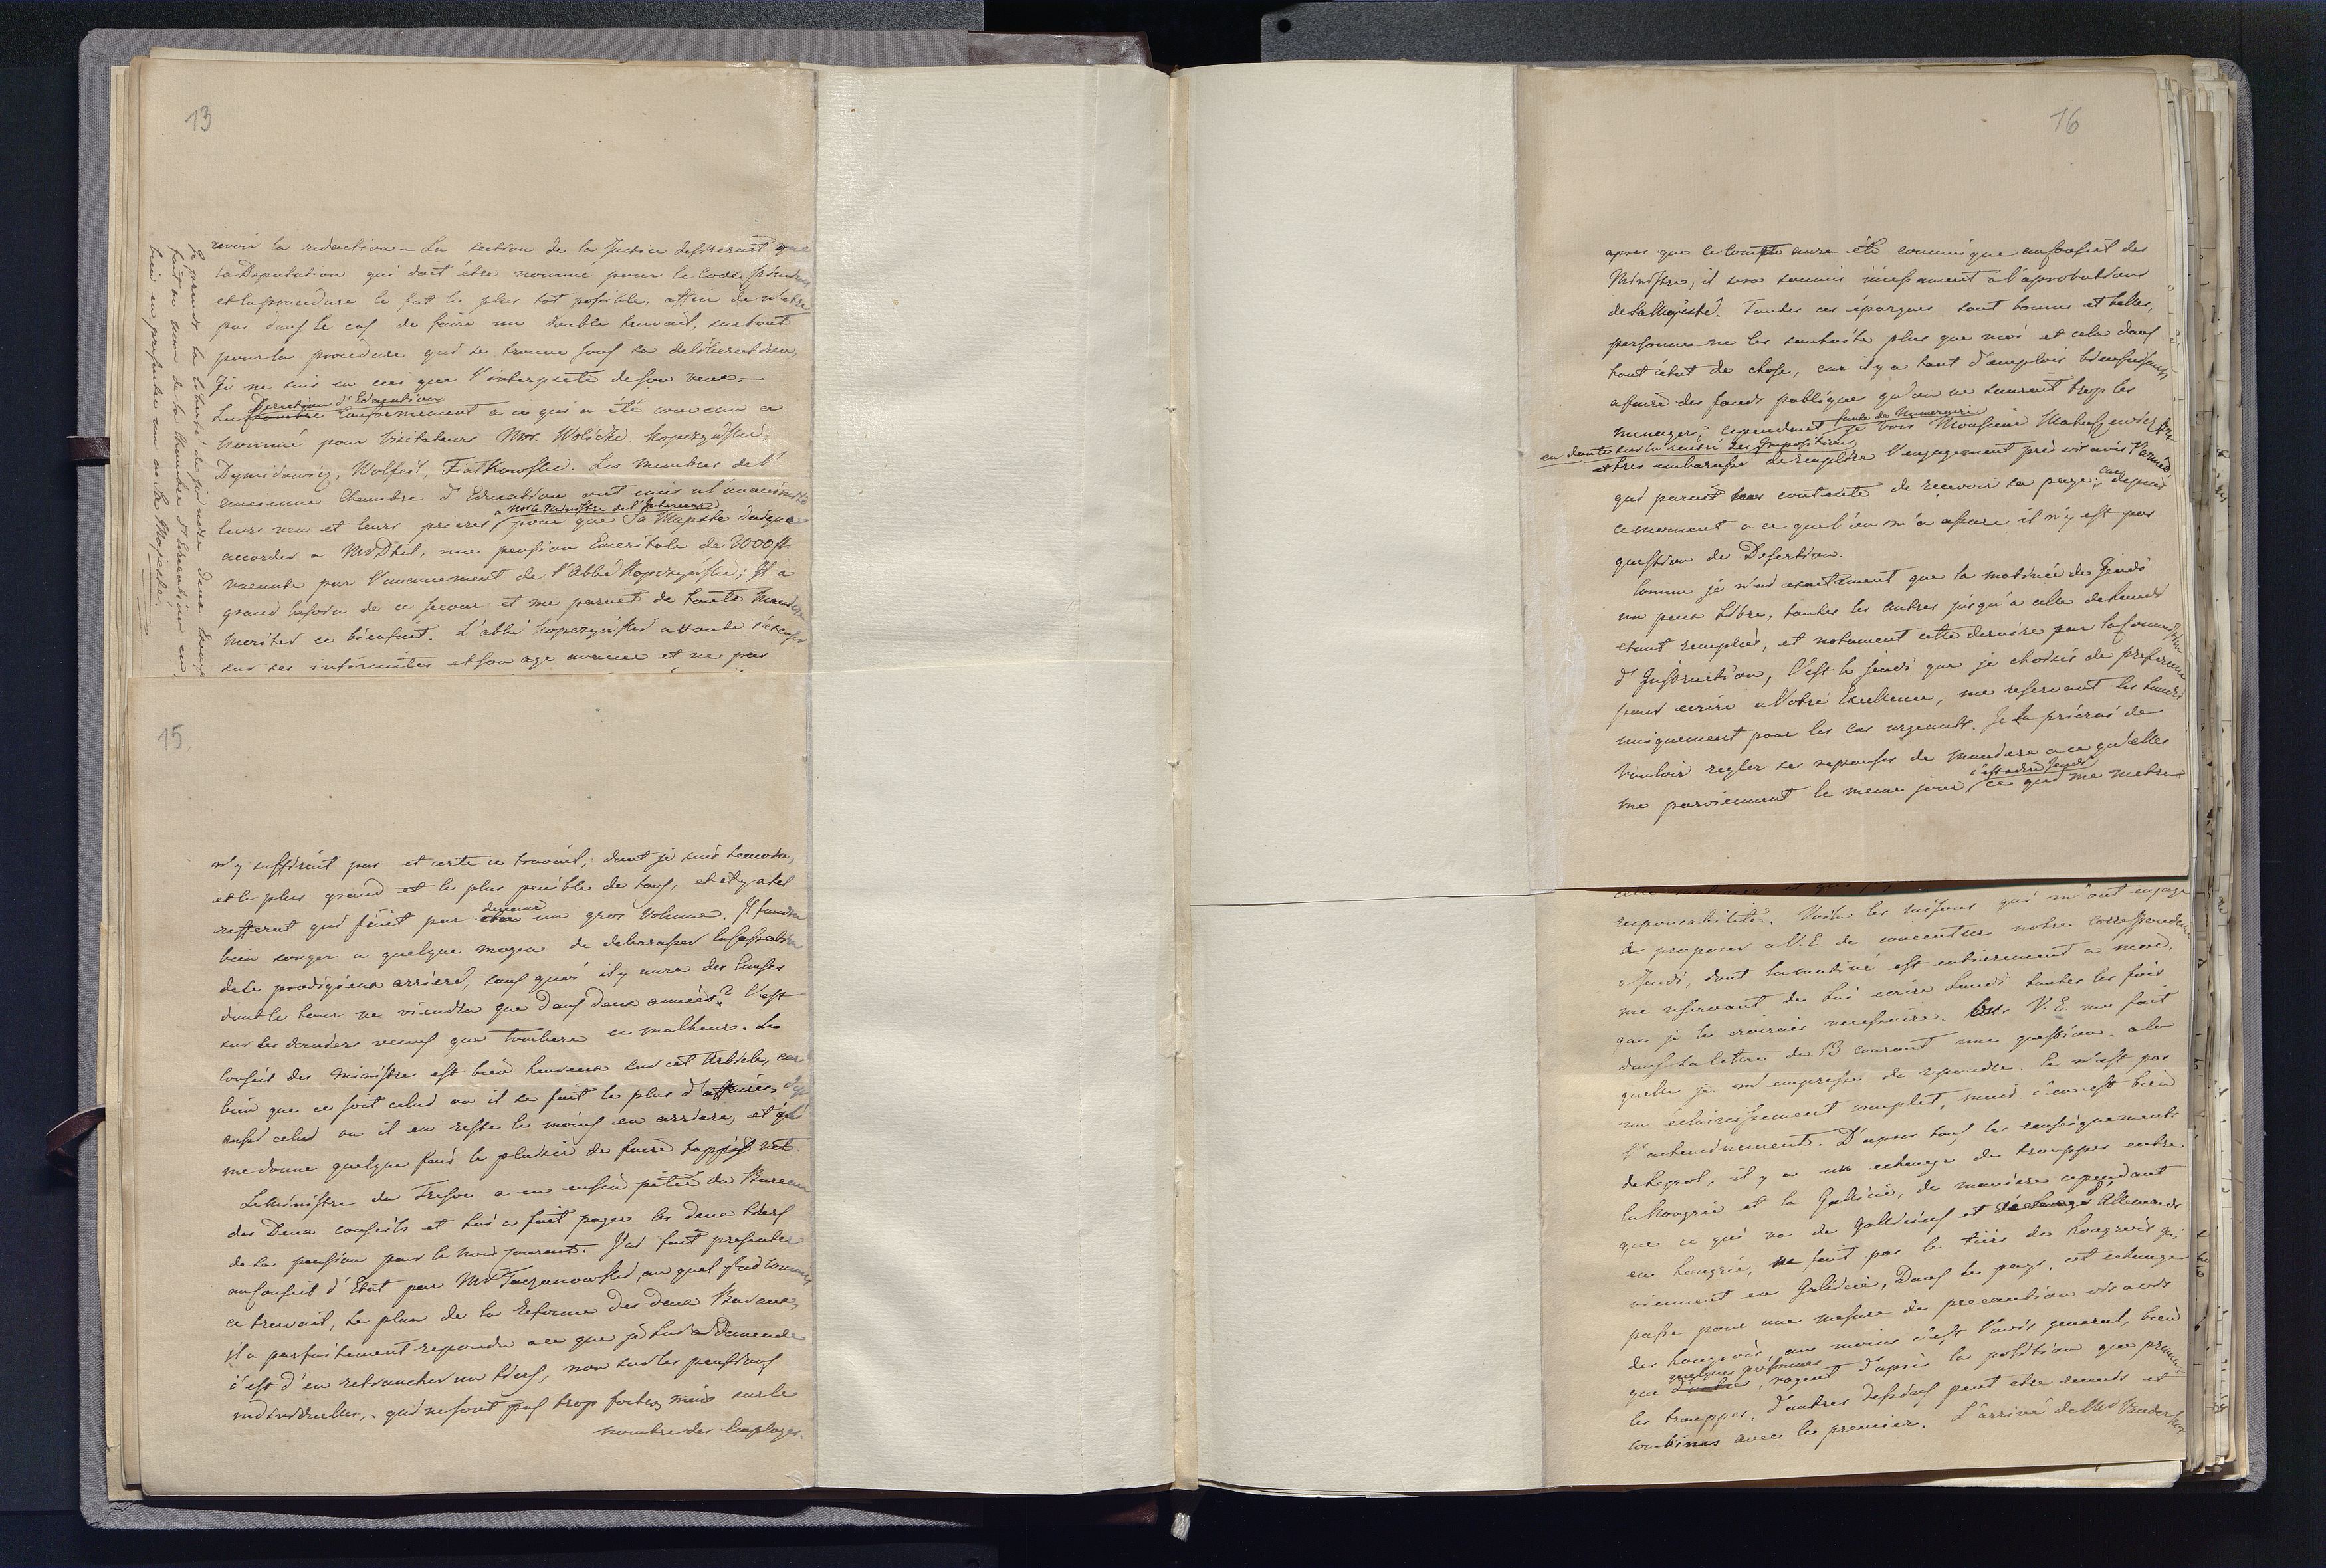 13
revoir la redaction – La section de la Justice desireroit que
la Deputation qui doit être nommé pour le Code
et la procedure le fut le plus tot possible, affin de n'etre
pas dans le cas de faire un double travail, surtout
pour la procedure qui se trouve sous sa deliberation,
Je ne suis en ceci que l'interprete de son veux –
La Chambre conformement a ce qui a été convenu a
Direction d'Education
nommé pour Visitateurs Mrs. Wolicki, Kopczyński,
Dymidowicz, Wolfeil, Fiatkowski. Les membres de l'
ancienne Chambre d'Education ont unis a l'unanimité
leurs veu et leurs prieres pour que Sa Majesté daigne
a Mr le Ministre de l'Interieur
accorder a Mr Dhil, une pension Emeritale de 3000 fl.
vacante par l'avancement de l'Abbé Kopczyński; Il a
grand besoin de ce secour et me paroit de toute maniere
meriter ce bienfait. L'abbé Kopczyński
sur ses infirmites et son age avancé et ne pas
Je prends la liberté de joindre deux
fait au nom de la Chambre d'Education en
bien en presenter un au Sa Majesté.
15.
n'y suffiroit pas et certe ce travail, dont je suis temoin,
est le plus grand et le plus penible de tous, et il y a tel
refferent qui finit par etre un gros Volume. Il faudra
devenir
bien songer a quelque moyen de debarasser la Cassation
de ce prodigieux arriéré, sans quoi il y aura des causes
dont le tour ne viendra que dans deux années? C'est
sur les derniers venus que tombera ce malheur. Le
Conseil des Ministres est bien heureux sur cet Article, car
bien que ce soit celui ou il se fait le plus d'affaires,
aussi celui ou il en reste le moins en arriere, et qui
me donne quelque fois le plaisir de faire tappis net.
Le Ministre du Tresor a eu enfin pitié du Bureau
des Deux conseils et lui a fait payer les deux tiers
de la pension pour le mois courant. J'ai fait presenter
au Conseil d'Etat par Mr Taczanowski, au quel j'ai commis
ce travail, le plan de la Reforme des deux Bureaux,
il a parfaitement repondu a ce que je lui ai demandé
c'est d'en retrancher un tiers, non sur les pensions
individuelles, qui ne sont pas trop fortes, mais sur le
nombre des Employés.
16
apres que le Compte aura été communiqué au Conseil des
Ministre, il sera soumis incessament a l'aprobation
de Sa Majesté. Toutes ces épargnes sont bonnes et belles,
personne ne les souhaite plus que moi et cela dans
tout état de chose, car il y a tant d'emplois bienfaisants
a faire des fonds publiques qu'on ne sauroit trop les
menager; cependant je vois Monsieur Matuszewicz
faute de Numeraire
en doute sur la rentré des Impositions
et tres embarassé de remplire l'engagement pris vis avis l'armée
qui paroit contente de recevoir sa paye; depuis
car
ce moment a ce que l'on m'a assuré il n'y est pas
question de Desertion.
Comme je n'ai exactement que la matinée de Jeudi
un peu Libre, toutes les autres jusqu'a celle de Lundi
etant remplies, et notament cette derniere par la Commission
d'Instruction, C'est le Jeudi que je choisis de preference
pour ecrire a Votre Excellence, me reservant les Lundi
uniquement pour les cas urgeants. Je la prierai de
vouloir regler ses reponses de maniere a ce qu'elles
me parviennent le meme jour, ce qui me mettra
c'est a dire Jeudi
responsabilité. Voila les raisons qui m'ont engagé
de proposer a V. E. de concentrer notre correspondence
a Jeudi, dont la matiné est entierement a moi,
me reservant de lui ecrire Lundi toutes les fois
que je le croirais necessaire. V. E. me fait
dans sa lettre du 13 courant une question a la
quelle je m'empresse de repondre. Ce n'est pas
un eclaircissement complet, mais s'en est bien
l'acheminement. D'apres tous les renseignements
de Leopol, il y a un echange de trouppes entre
la Hongrie et la Galicie, de maniere cependant
que ce qui va de Galiciens et Allemands
en Hongrie, ne fait pas le tiers de Hongrois qui
viennent en Galicie, Dans le pays, cet echange
passe pour une mesure de precaution vis avis
des hongrois, au moins c'est l'avis general, bien
que, voyent d'apres la position que prennent
quelques personnes
les trouppes, d'autres desseins peut etre reunis et
combinés avec le premiere. L'arrivé de Mr